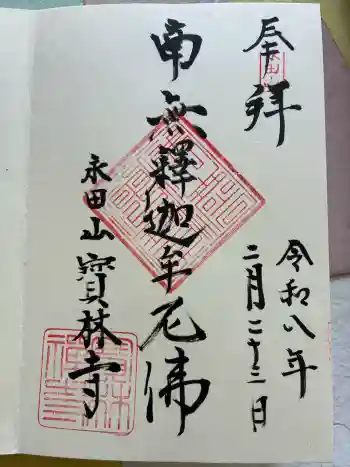 奉拝
令和八年
二月二十二日
南無釋迦牟尼佛
永田山
寶林寺